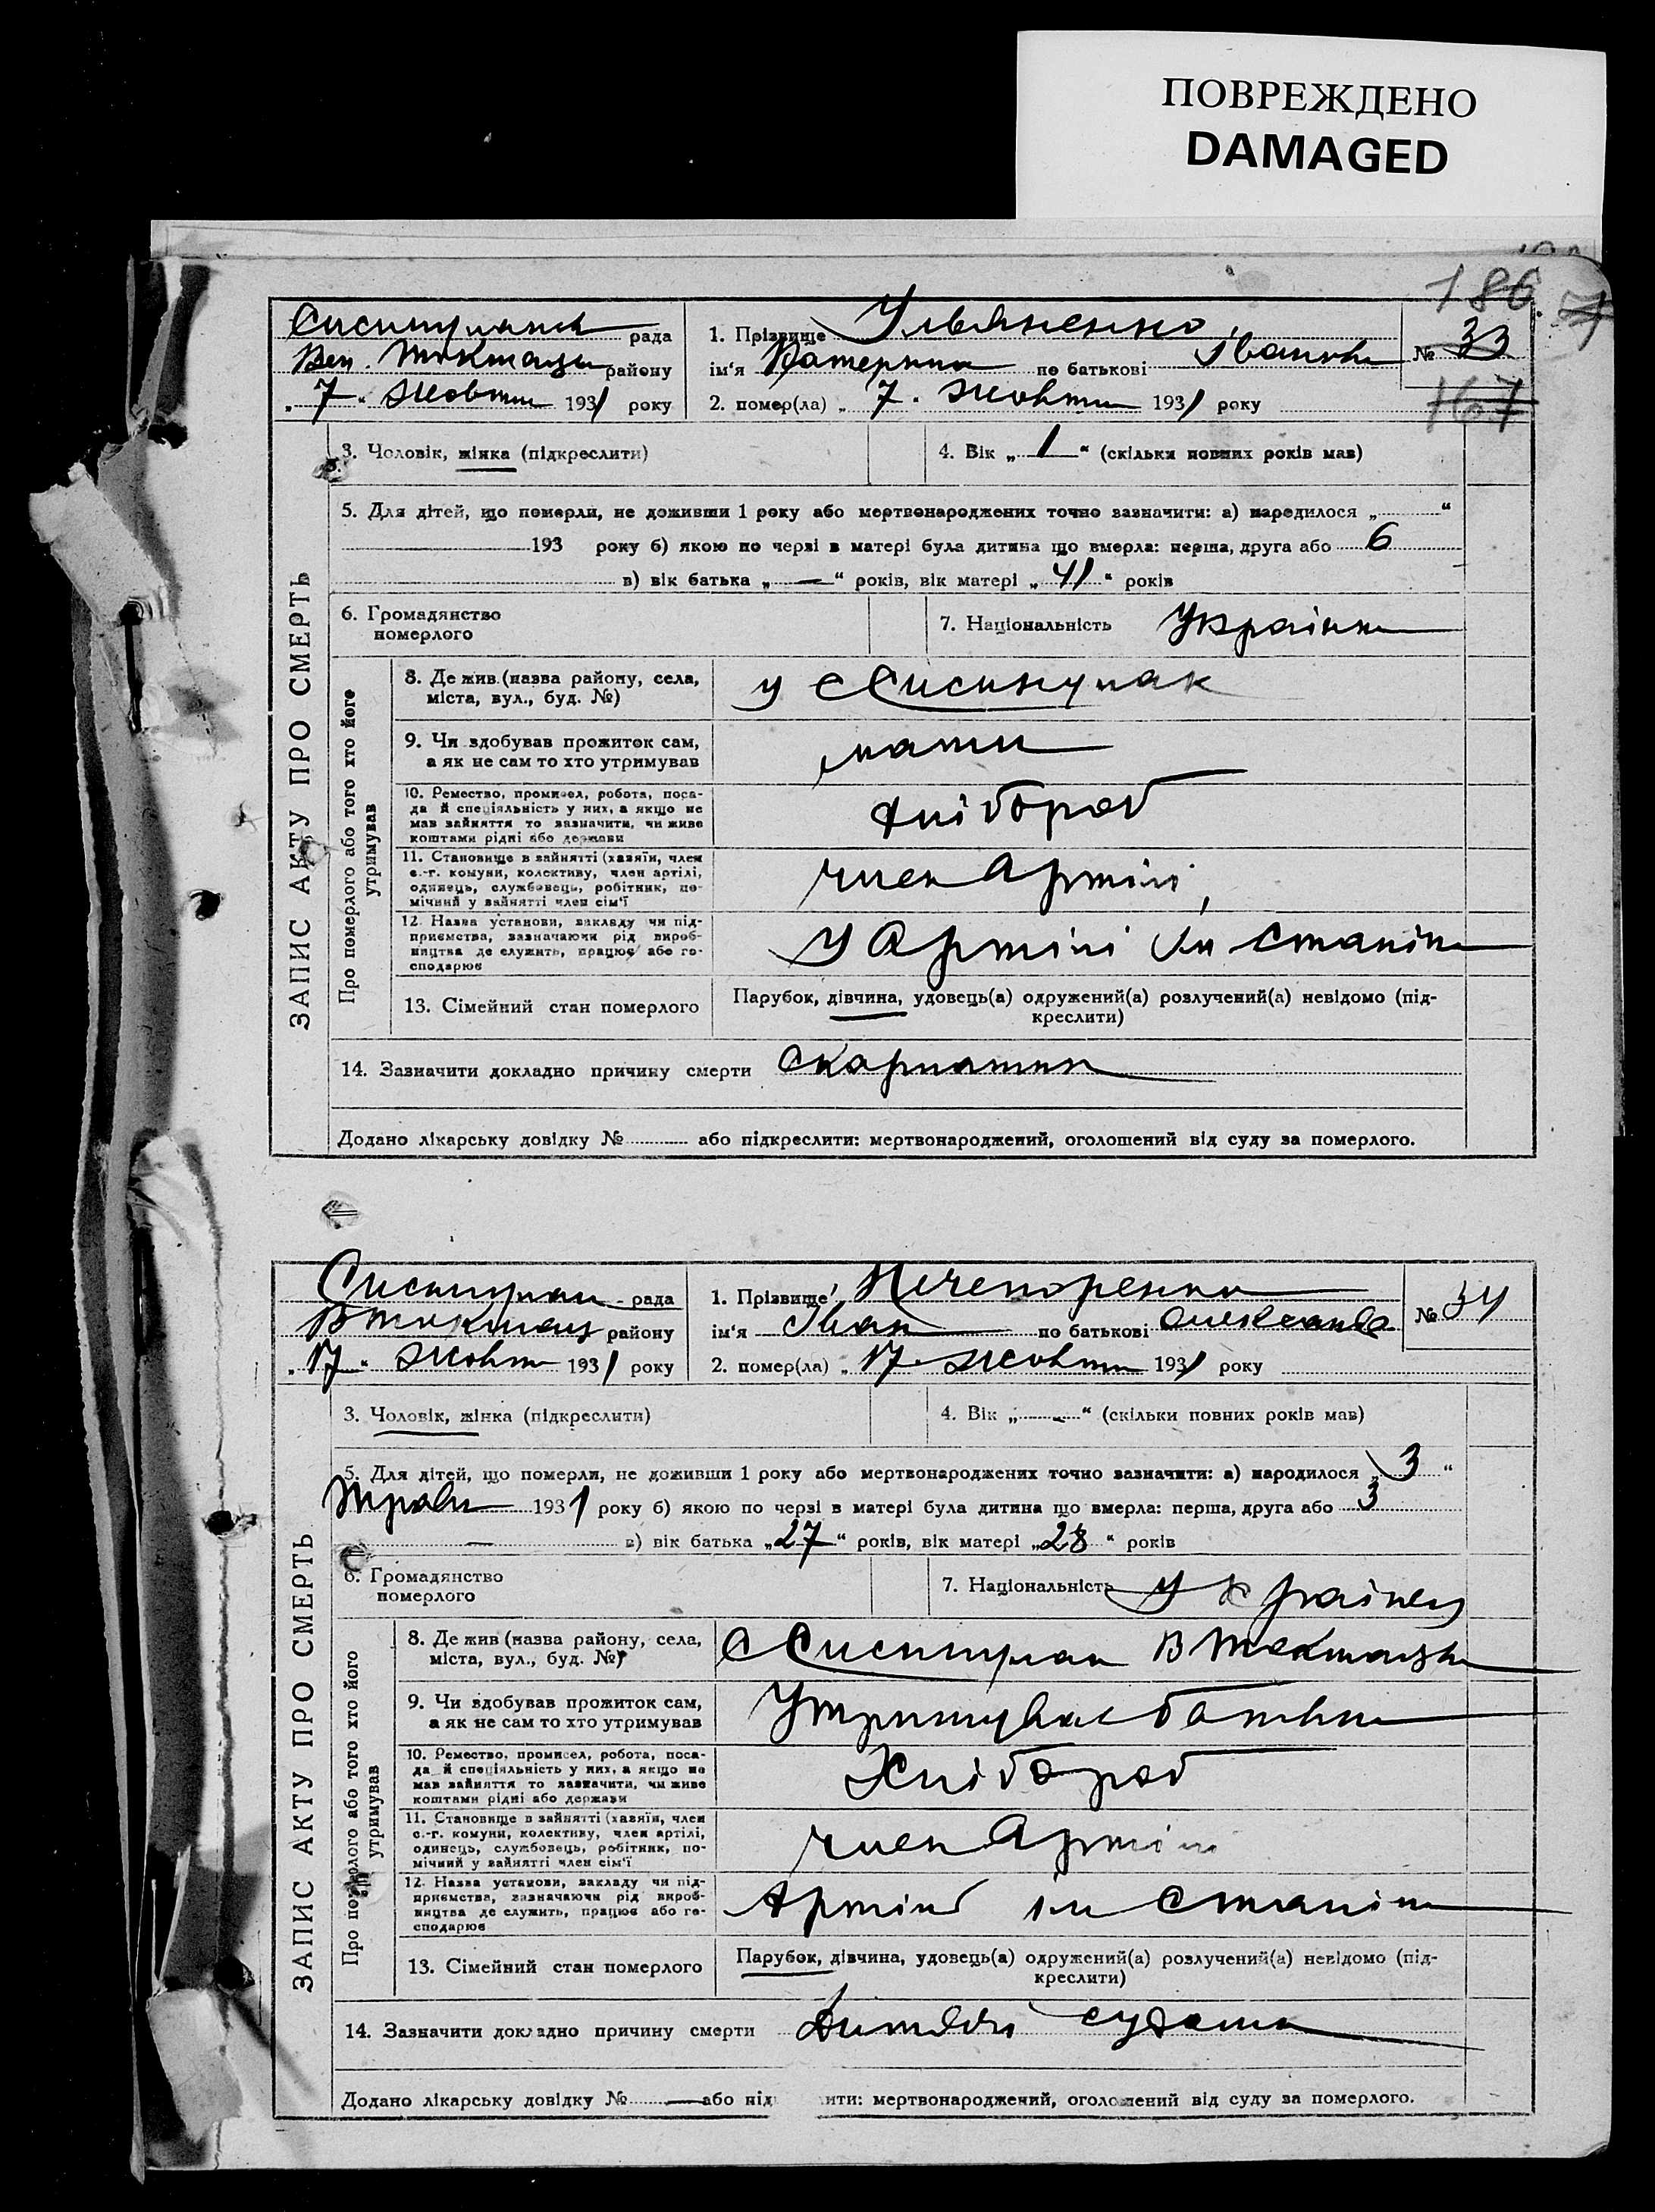 ПОВРЕЖДЕНО
DAMAGED
186
рада
Вел. Токмацьк району
„ 7 “ Жовтн 1931 року
1. Прізвище Ульяненко
ім‘я Катерина по батькові Івановн
2. помер(ла) „ 7. Жовтн 1931 року
№ 33
167
ЗАПИС АКТУ ПРО СМЕРТЬ
3. Чоловік, жінка (підкреслити)
4. Вік „ 1 “ (скільки повних років мав)
5. Для дітей, що померли, не доживши 1 року або мертвонароджених точно зазначити: а) народилося „ “
193 року б) якою по черзі в матері була дитина що вмерла: перша, друга або 6
в) вік батька „ — “ років, вік матері „ 41 “ років
6. Громадянство
померлого
7. Національність Українк
Про померлого або того хто його
утримував
8. Де жив (назва району, села,
міста, вул., буд. №)
у с
9. Чи здобував прожиток сам,
а як не сам то хто утримував
мати
10. Ремество, промисел, робота, поса-
да й спеціяльність у них, а якщо не
мав зайняття то зазначити, чи живе
коштами рідні або держави
хлібороб
11. Становище в зайнятті (хазяїн, член
с.-г. комуни, колективу, член артілі,
одинець, службовець, робітник, по-
мічний у зайнятті член сім‘ї
член Артілі,
12. Назва установи, закладу чи під-
приємства, зазначаючи рід вироб-
ництва де служить, працює або го-
сподарює
У Артілі Ім Сталін
13. Сімейний стан померлого
Парубок, дівчина, удовець(а) одружений(а) розлучений(а) невідомо (під-
креслити)
14. Зазначити докладно причину смерти скарлатин
Додано лікарську довідку № або підкреслити: мертвонароджений, оголошений від суду за померлого.
рада
В Токмац району
„ 17 “ Жовтн 1931 року
1. Прізвище Нечепоренко
ім‘я Іван по батькові Олександ
2. помер(ла) „ 17. Жовтн 1931 року
№ 34
ЗАПИС АКТУ ПРО СМЕРТЬ
3. Чоловік, жінка (підкреслити)
4. Вік „ - “ (скільки повних років мав)
5. Для дітей, що померли, не доживши 1 року або мертвонароджених точно зазначити: а) народилося „ 3 “
Травн 1931 року б) якою по черзі в матері була дитина що вмерла: перша, друга або 3
— в) вік батька „ 27 “ років, вік матері „ 28 “ років
6. Громадянство
померлого
7. Національність Українец
Про померлого або того хто його
утримував
8. Де жив (назва району, села,
міста, вул., буд. №)
С В Токмацьк
9. Чи здобував прожиток сам,
а як не сам то хто утримував
Утримував батьк
10. Ремество, промисел, робота, поса-
да й спеціяльність у них, а якщо не
мав зайняття то зазначити, чи живе
коштами рідні або держави
Хлібороб
11. Становище в зайнятті (хазяїн, член
с.-г. комуни, колективу, член артілі,
одинець, службовець, робітник, по-
мічний у зайнятті член сім‘ї
член Артілі
12. Назва установи, закладу чи під-
приємства, зазначаючи рід вироб-
ництва де служить, працює або го-
сподарює
Артіль ім Сталін
13. Сімейний стан померлого
Парубок, дівчина, удовець(а) одружений(а) розлучений(а) невідомо (під-
креслити)
14. Зазначити докладно причину смерти Дитячі судоми
Додано лікарську довідку № — або під ити: мертвонароджений, оголошений від суду за померлого.